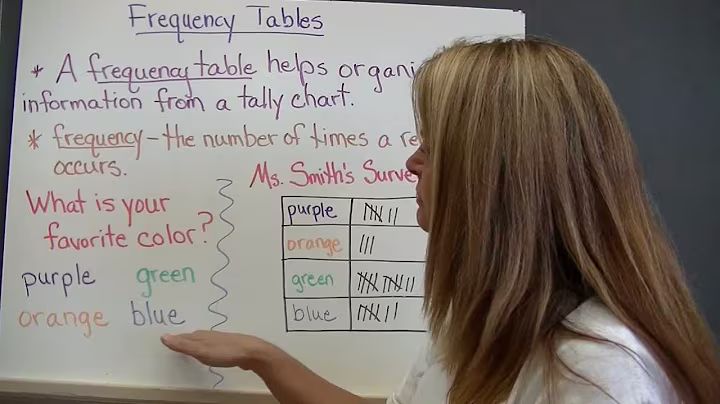 Frequency Tables
* A frequency table helps organi
information from a tally chart.
* frequency - the number of times a re
occurs.
What is your
favorite color?
purple green
orange blue
Ms. Smith's Surve
purple
orange
green
blue